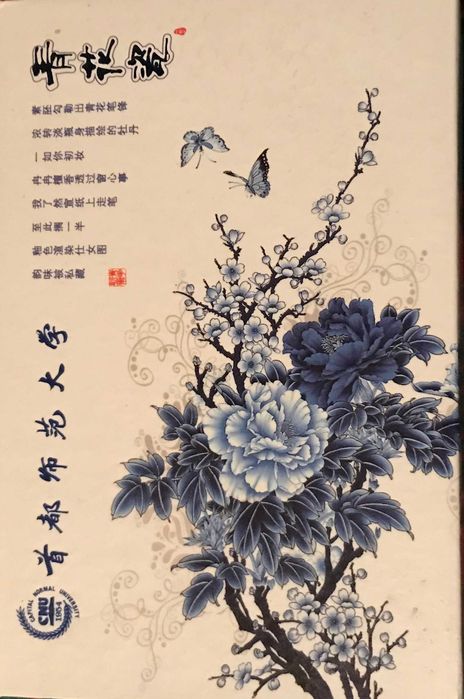 青花瓷
素胚勾勒出青花笔锋
浓转淡瓶身描绘的牡丹
一如你初妆
冉冉檀香透过窗心事
我了然宣纸上走笔
至此搁一半
釉色渲染仕女图
韵味被私藏
首都师范大学
CAPITAL NORMAL UNIVERSITY
CNU
1954